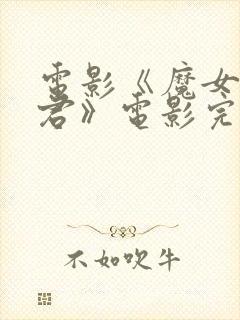 电影《魔女
君》电影完
不如吹牛